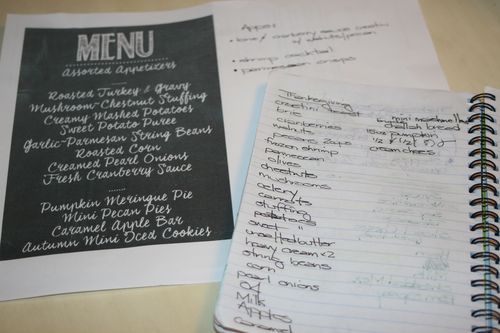 MENU
Assorted Appetizers
Roasted Turkey & Gravy
Mushroom-Chestnut Stuffing
Creamy Mashed Potatoes
Sweet Potato Puree
Garlic-Parmesan String Beans
Roasted Corn
Creamed Pearl Onions
Fresh Cranberry Sauce
Pumpkin Meringue Pie
Mini Pecan Pies
Caramel Apple Bar
Autumn Mini Iced Cookies
Apps:
• brie / cranberry sauce crostini
w/ walnuts/pecan
• shrimp cocktail
• parmesan crisps
Thanksgiving
crostini bread
brie
cranberries
walnuts
frozen shrimp
parmesan
olives
chestnuts
mushrooms
celery
carrots
stuffing
potatoes
sweet "
unsalted butter
heavy cream x2
string beans
corn
pearl onions
OJ
Milk
Apples
caramel
mini marshmallows
challah bread
15oz pumpkin
cream cheese